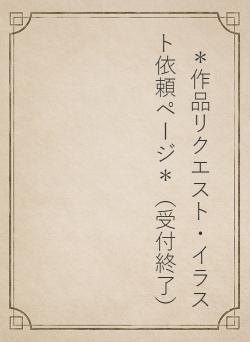 ＊作品リクエスト・イラス
ト依頼ページ＊（受付終了）